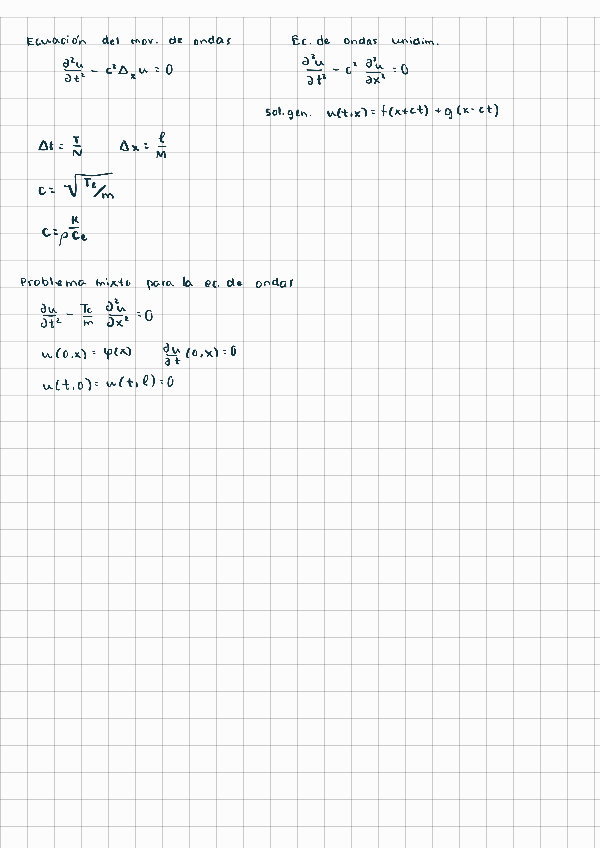 Ecuación del mov. de ondas
∂²u/∂t² - c²Δₓu = 0
Ec. de ondas unidim.
∂²u/∂t² - c² ∂²u/∂x² = 0
Sol. gen. u(t,x) = f(x+ct) + g(x-ct)
Δt = T/N Δx = ℓ/M
c = √(Tℓ/m)
c = ρ K/Ce
Problema mixto para la ec. de ondas
∂u/∂t² - Tℓ/m ∂²u/∂x² = 0
u(0,x) = φ(x) ∂u/∂t (0,x) = 0
u(t,0) = u(t,ℓ) = 0